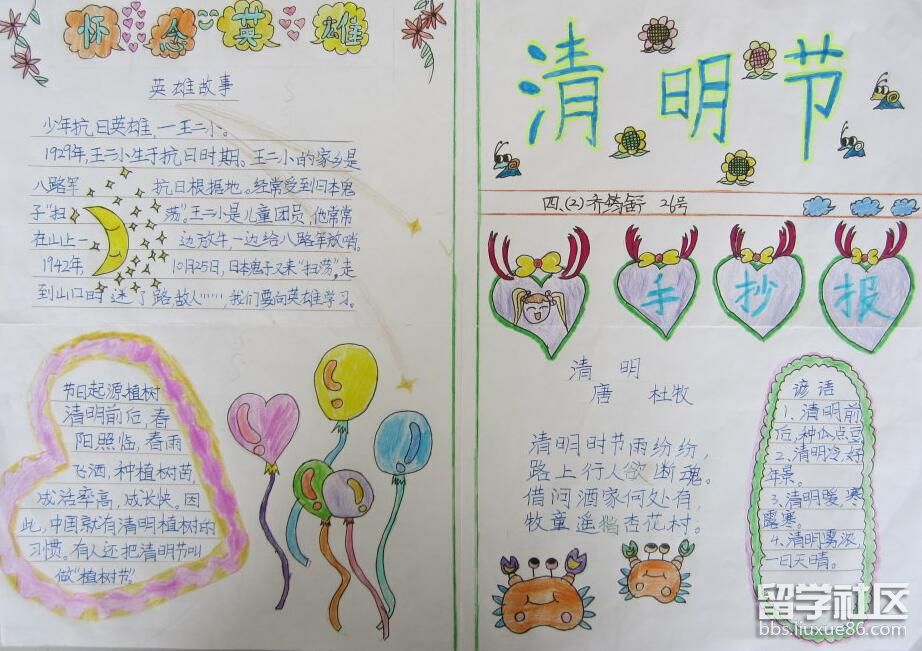 怀念英雄
英雄故事
少年抗日英雄,一王二小。
1929年,王二小生于抗日时期。王二小的家乡是
八路军 抗日根据地。经常受到日本鬼
子“扫 荡”。王二小是儿童团员,他常常
在山上一 边放牛,一边给八路军放哨。
1942年, 10月25日,日本鬼子又来“扫荡”,走
到山口时 迷了路敌人……,我们要向英雄学习。
节日起源,植树
清明前后,春
阳照临,春雨
飞洒,种植树苗,
成活率高,成长快。因
此,中国就有清明植树的
习惯。有人还把清明节叫
做“植树节。
清明节
四、(2) 齐 26号
手抄报
清明
唐 杜牧
清明时节雨纷纷,
路上行人欲断魂。
借问酒家何处有,
牧童遥指杏花村。
谚语
1、清明前
后,种瓜点豆
2、清明冷,好
年景。
3、清明暖,寒
露寒。
4、清明雾浓,
一日天晴。
留学社区
bbs.liuxue86.com